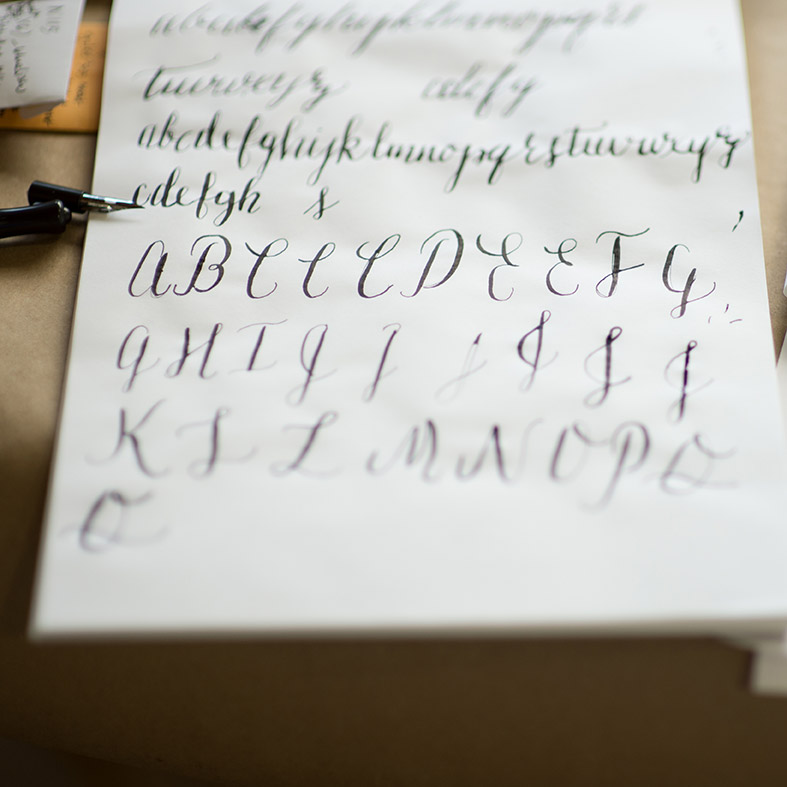 abcdefghijklmnopqrst
tuvwxyz cdefg
abcdefghijklmnopqrstuvwxyz
cdefgh s
A B C C C D E E F G
G H I J J J J J J
K L L M N O P Q
Q